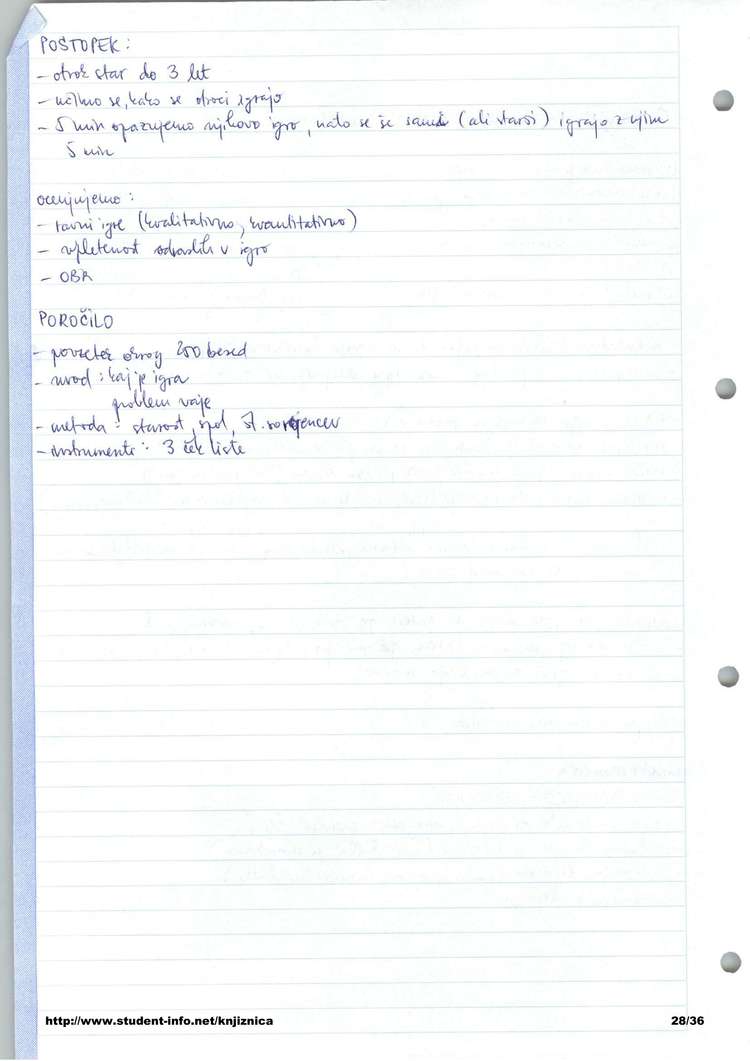 POSTOPEK:
- otrok star do 3 let
- učimo se, kako se otroci igrajo
- 5 min opazujemo njihovo igro, nato se še sami (ali starši) igrajo z njim
5 min
ocenjujemo:
- ravni igre (kvalitativno, kvantitativno)
- vpletenost odraslih v igro
- OBR
POROČILO
- povzetek okrog 200 besed
- uvod: kaj je igra
problem vaje
- metoda: starost, spol, št. sorojencev
- instrumenti: 3 ček liste
http://www.student-info.net/knjiznica
28/36